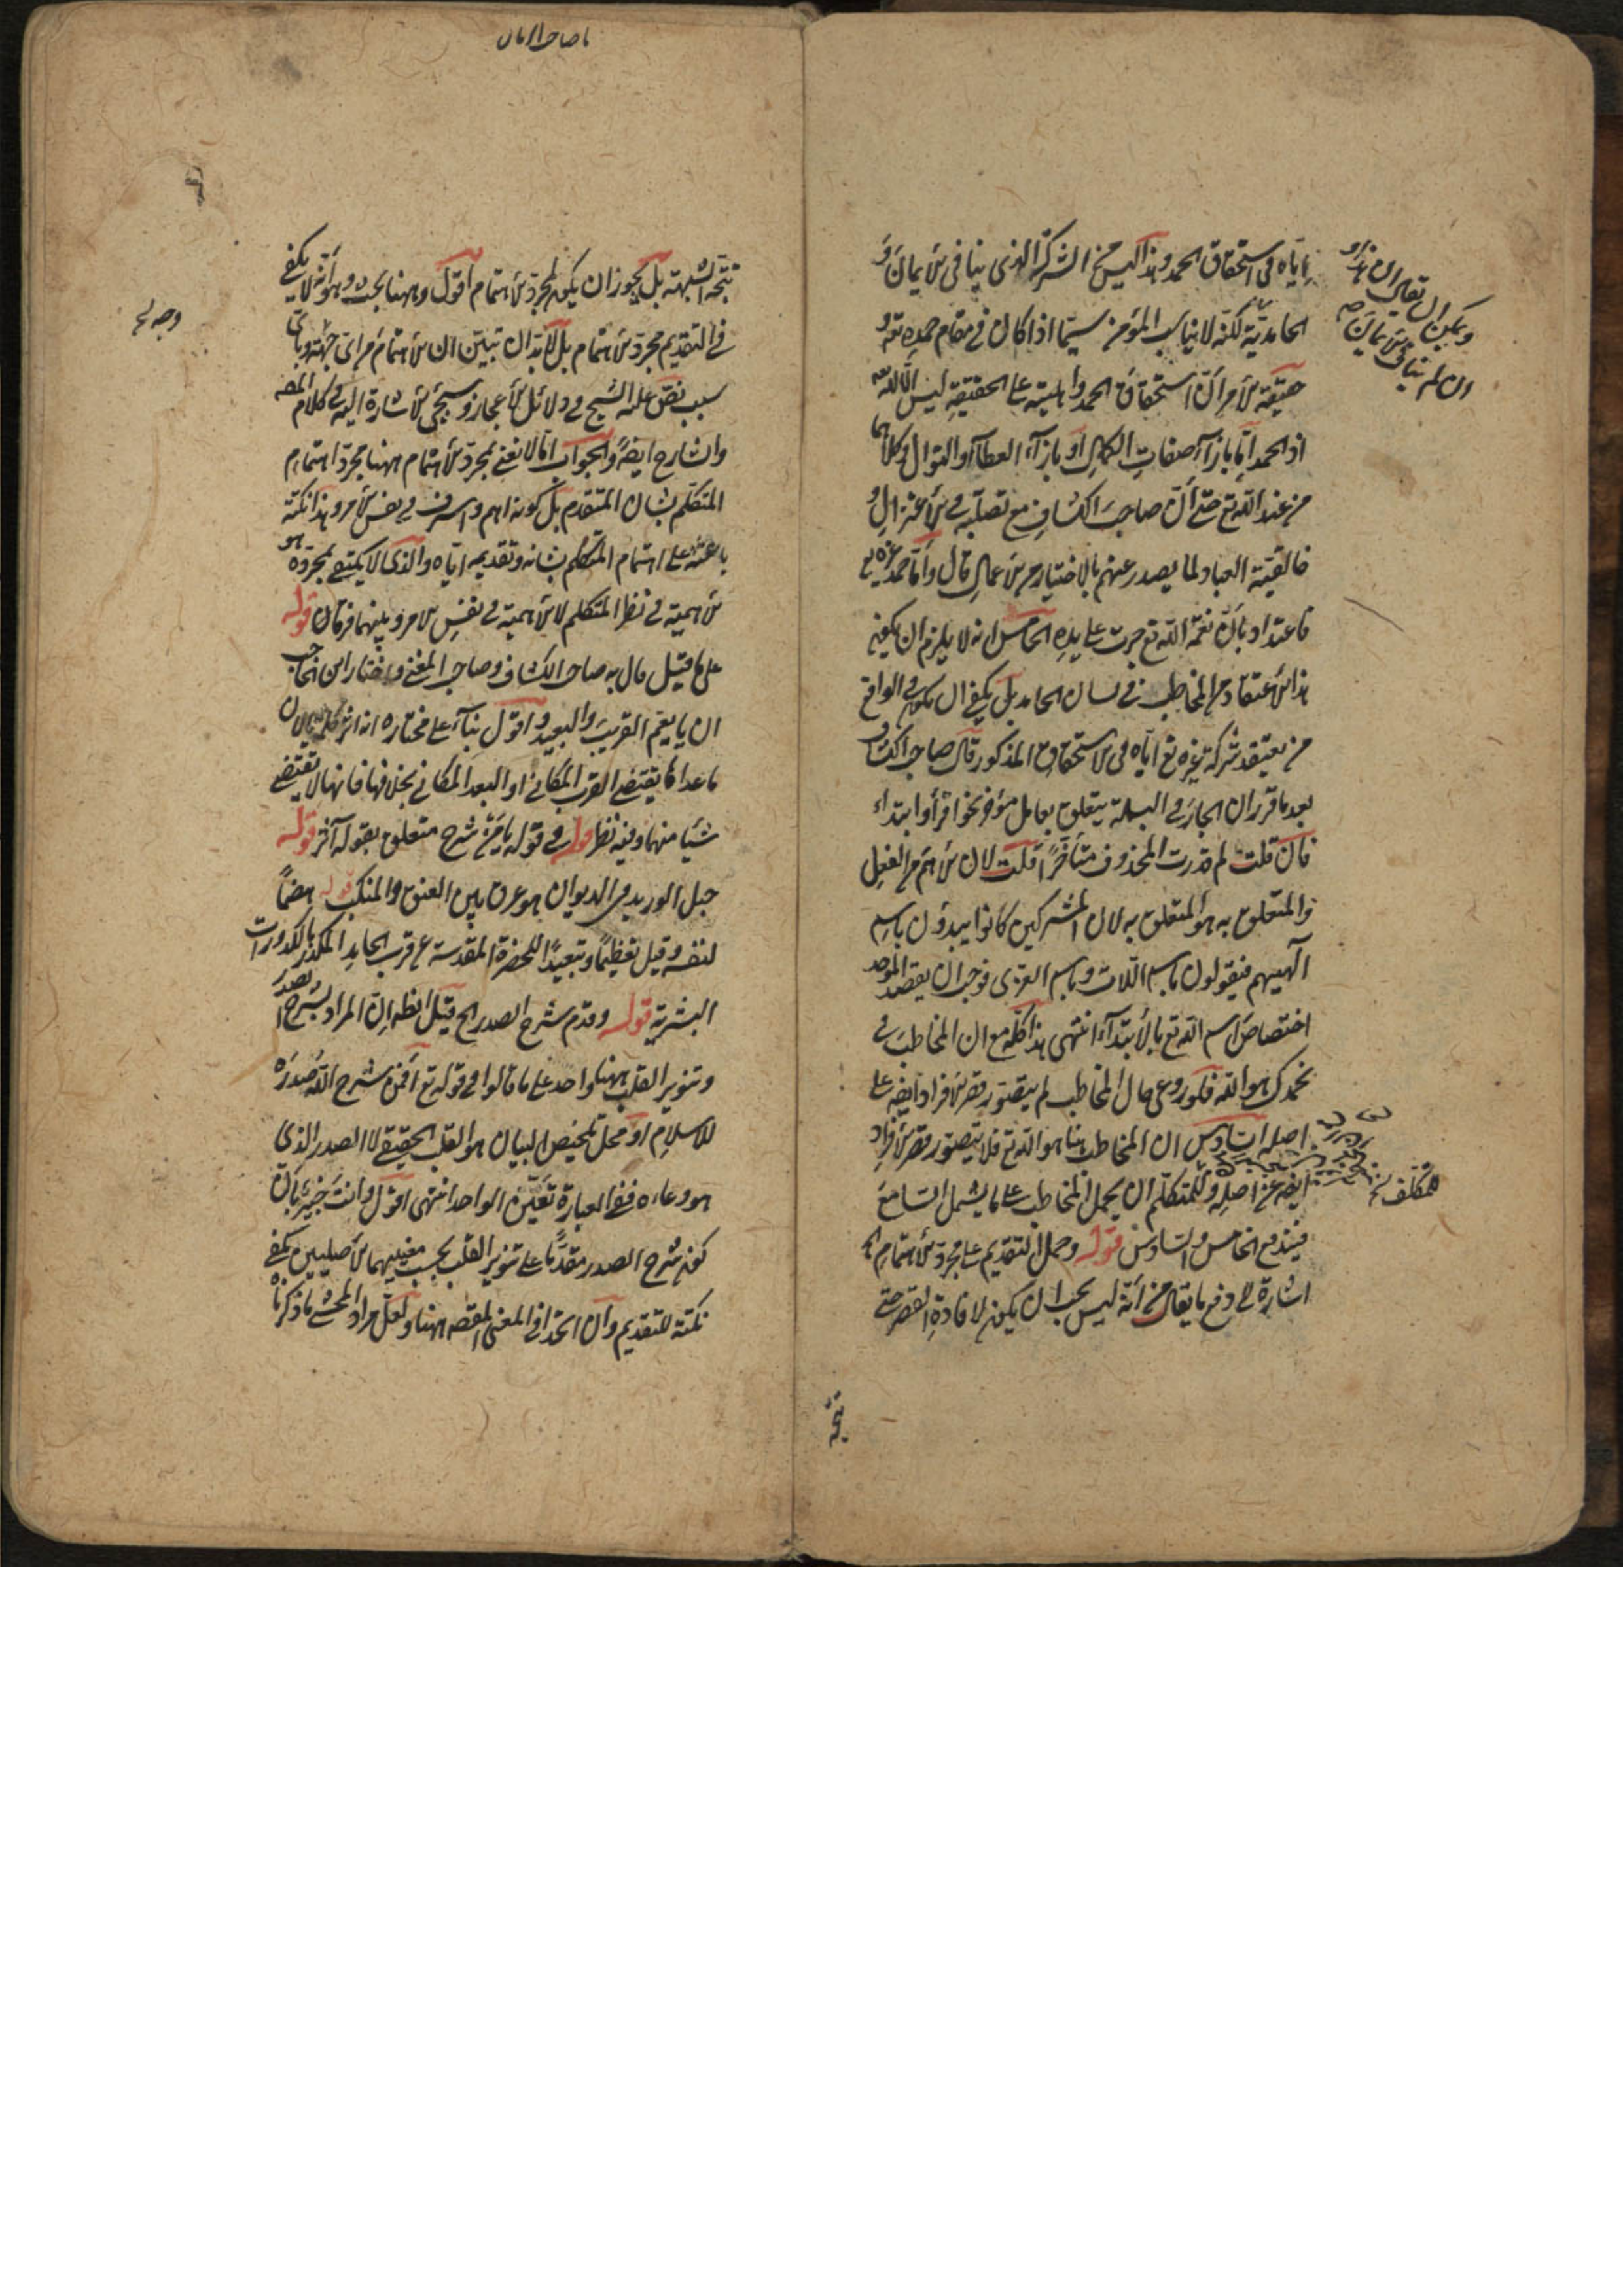 اياه في استحقاق الحمد وهذا ليس من الشركة الذي ينافي الايمان و
الحامدية لكنه لا يناسب المؤمن سيما اذا كان في مقام حمده تع و
حقيقة الامر ان استحقاق الحمد واهليته على الحقيقة ليس الا لله
اذ الحمد اما بازآء صفات الكمال او بازآء العطآء والنوال وكلاهما
من عند الله تع حتى أن صاحب الكشاف مع تصلبه في الاعتزال و
خالقية العباد لما يصدر عنهم بالاختيار من الاعمال قال وأما حمد غيره
فاعتداد بان نعمة الله تع جرت على يده الخامس انه لا يلزم ان يكون
هذا الاعتقاد من المخاطب في لسان الحامد بل يكفي ان يكون في الواقع
من يعتقد شركة غيره تع اياه في الاستحقاق المذكور قال صاحب الكشاف
بعد ما قرر ان الجار في البسملة يتعلق بعامل مؤخر نحو اقرأ او ابتداء
فان قلت لم قدرت المحذوف متأخرًا قلت لان الاهم من الفعل
والمتعلق به هو المتعلق به لان المشركين كانوا يبدؤن باسم
آلهيهم فيقولون باسم اللات وباسم العزى فوجب ان يقصد الموحد
اختصاص اسم الله تع بالابتدآء انتهى هذا كله مع ان المخاطب في
نحمدك هو الله فلو روعي حال المخاطب لم يتصور قصر الافراد ايضه على
اصله السادس ان المخاطب هنا هو الله تع فلا يتصور قصر الافراد
ايضه عن اصله وللمتكلم ان يحمل المخاطب على ما يشمل السامع
فيندفع الخامس والسادس قوله وحمل التقديم على مجرد الاهتمام اه
اشارة الى دفع ما يقال من أنه ليس يجب ان يكون لافادة القصر حتى
ويمكن ان يقال ان هذا و
ان لم يناف الايمان
للمتكلف نخ
تتجه
يا صاحب الزمان
تتجه الشبهة بل يجوز ان يكون لمجرد الاهتمام أقول وههنا بحث وهو أنه لا يكفي
في التقديم مجرد الاهتمام بل لابد ان تبين ان الاهتمام من اى جهة وباى
سبب نص عليه الشيخ في دلائل الاعجاز وسيجئ الاشارة اليه في كلام المصه
والشارح ايضه والجواب انا لا نعني بمجرد الاهتمام ههنا مجرد اهتمام
المتكلم بشان المتقدم بل كونه اهم واشرف في نفس الامر وهذا نكتة
باعثة على اهتمام المتكلم بشانه وتقديمه اياه والذي لا يكتفى بمجرده هو
الاهمية في نظر المتكلم لا الاهمية في نفس الامر وبينهما فرقان قوله
على ما قيل قال به صاحب الكشاف وصاحب المغني واختار ابن الحاجب
ان يا يعم القريب والبعيد واقول بنآء على مختاره انه
ما عداها يقتضي القرب المكاني او البعد المكاني بخلافها فانها لا تقتضي
شيئا منهما وفيه نظر قوله في قوله يا من شرح متعلق بقوله آخر قوله
حبل الوريد في الديوان هو عرق بين العنق والمنكب قوله هضمًا
لنفسه وقيل تعظيمًا وتبعيدًا للحضرة المقدسة عن قرب الحامد المكدر بالكدورات
البشرية قوله وقدم شرح الصدر الخ قيل الظه ان المراد بشرح الصدر
وتنوير القلب ههنا واحد على ما قالوا في قوله تع أفمن شرح الله صدره
للاسلام او محل تلخيص البيان هو القلب الحقيقي لا الصدر الذي
هو وعاءه ففي العبارة تعين الواحد انتهى اقول وانت خبير بان
كون شرح الصدر مقدمًا على تنوير القلب بحسب معنييهما الاصليين يكفي
نكتة للتقديم وان اتحدا في المعنى المقصه ههنا ولعل مراد المحشى ما ذكرناه
وجه نخ